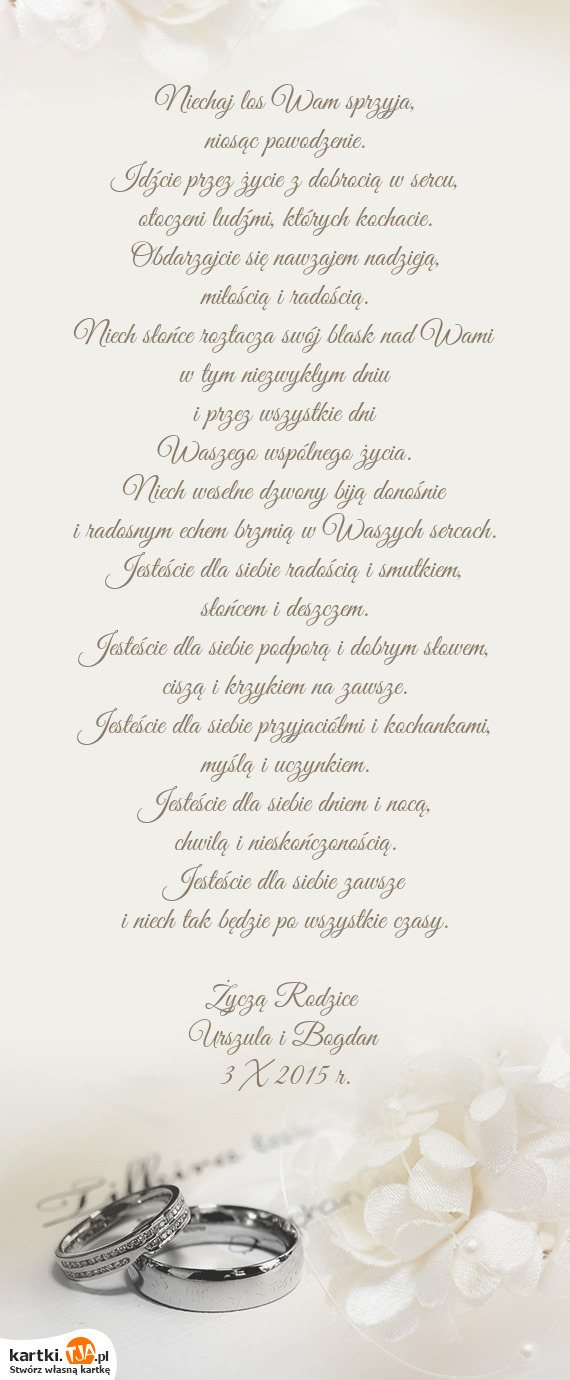 Niechaj los Wam sprzyja,
niosąc powodzenie.
Idźcie przez życie z dobrocią w sercu,
otoczeni ludźmi, których kochacie.
Obdarzajcie się nawzajem nadzieją,
miłością i radością.
Niech słońce roztacza swój blask nad Wami
w tym niezwykłym dniu
i przez wszystkie dni
Waszego wspólnego życia.
Niech weselne dzwony biją donośnie
i radosnym echem brzmią w Waszych sercach.
Jesteście dla siebie radością i smutkiem,
słońcem i deszczem.
Jesteście dla siebie podporą i dobrym słowem,
ciszą i krzykiem na zawsze.
Jesteście dla siebie przyjaciółmi i kochankami,
myślą i uczynkiem.
Jesteście dla siebie dniem i nocą,
chwilą i nieskończonością.
Jesteście dla siebie zawsze
i niech tak będzie po wszystkie czasy.
Życzą Rodzice
Urszula i Bogdan
3 X 2015 r.
kartki.TJA.pl
Stwórz własną kartkę